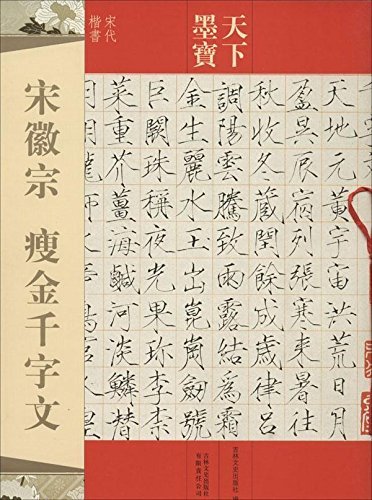 天下
墨寶
宋代
楷書
宋徽宗 瘦金千字文
天地元黃宇宙洪荒日月
盈昃辰宿列張寒來暑往
秋收冬藏閏餘成歲律呂
調陽雲騰致雨露結爲霜
金生麗水玉出崑崗劒號
巨闕珠稱夜光果珎李柰
菜重芥薑海鹹河淡鱗
吉林文史出版社
吉林文史出版社
有限責任公司